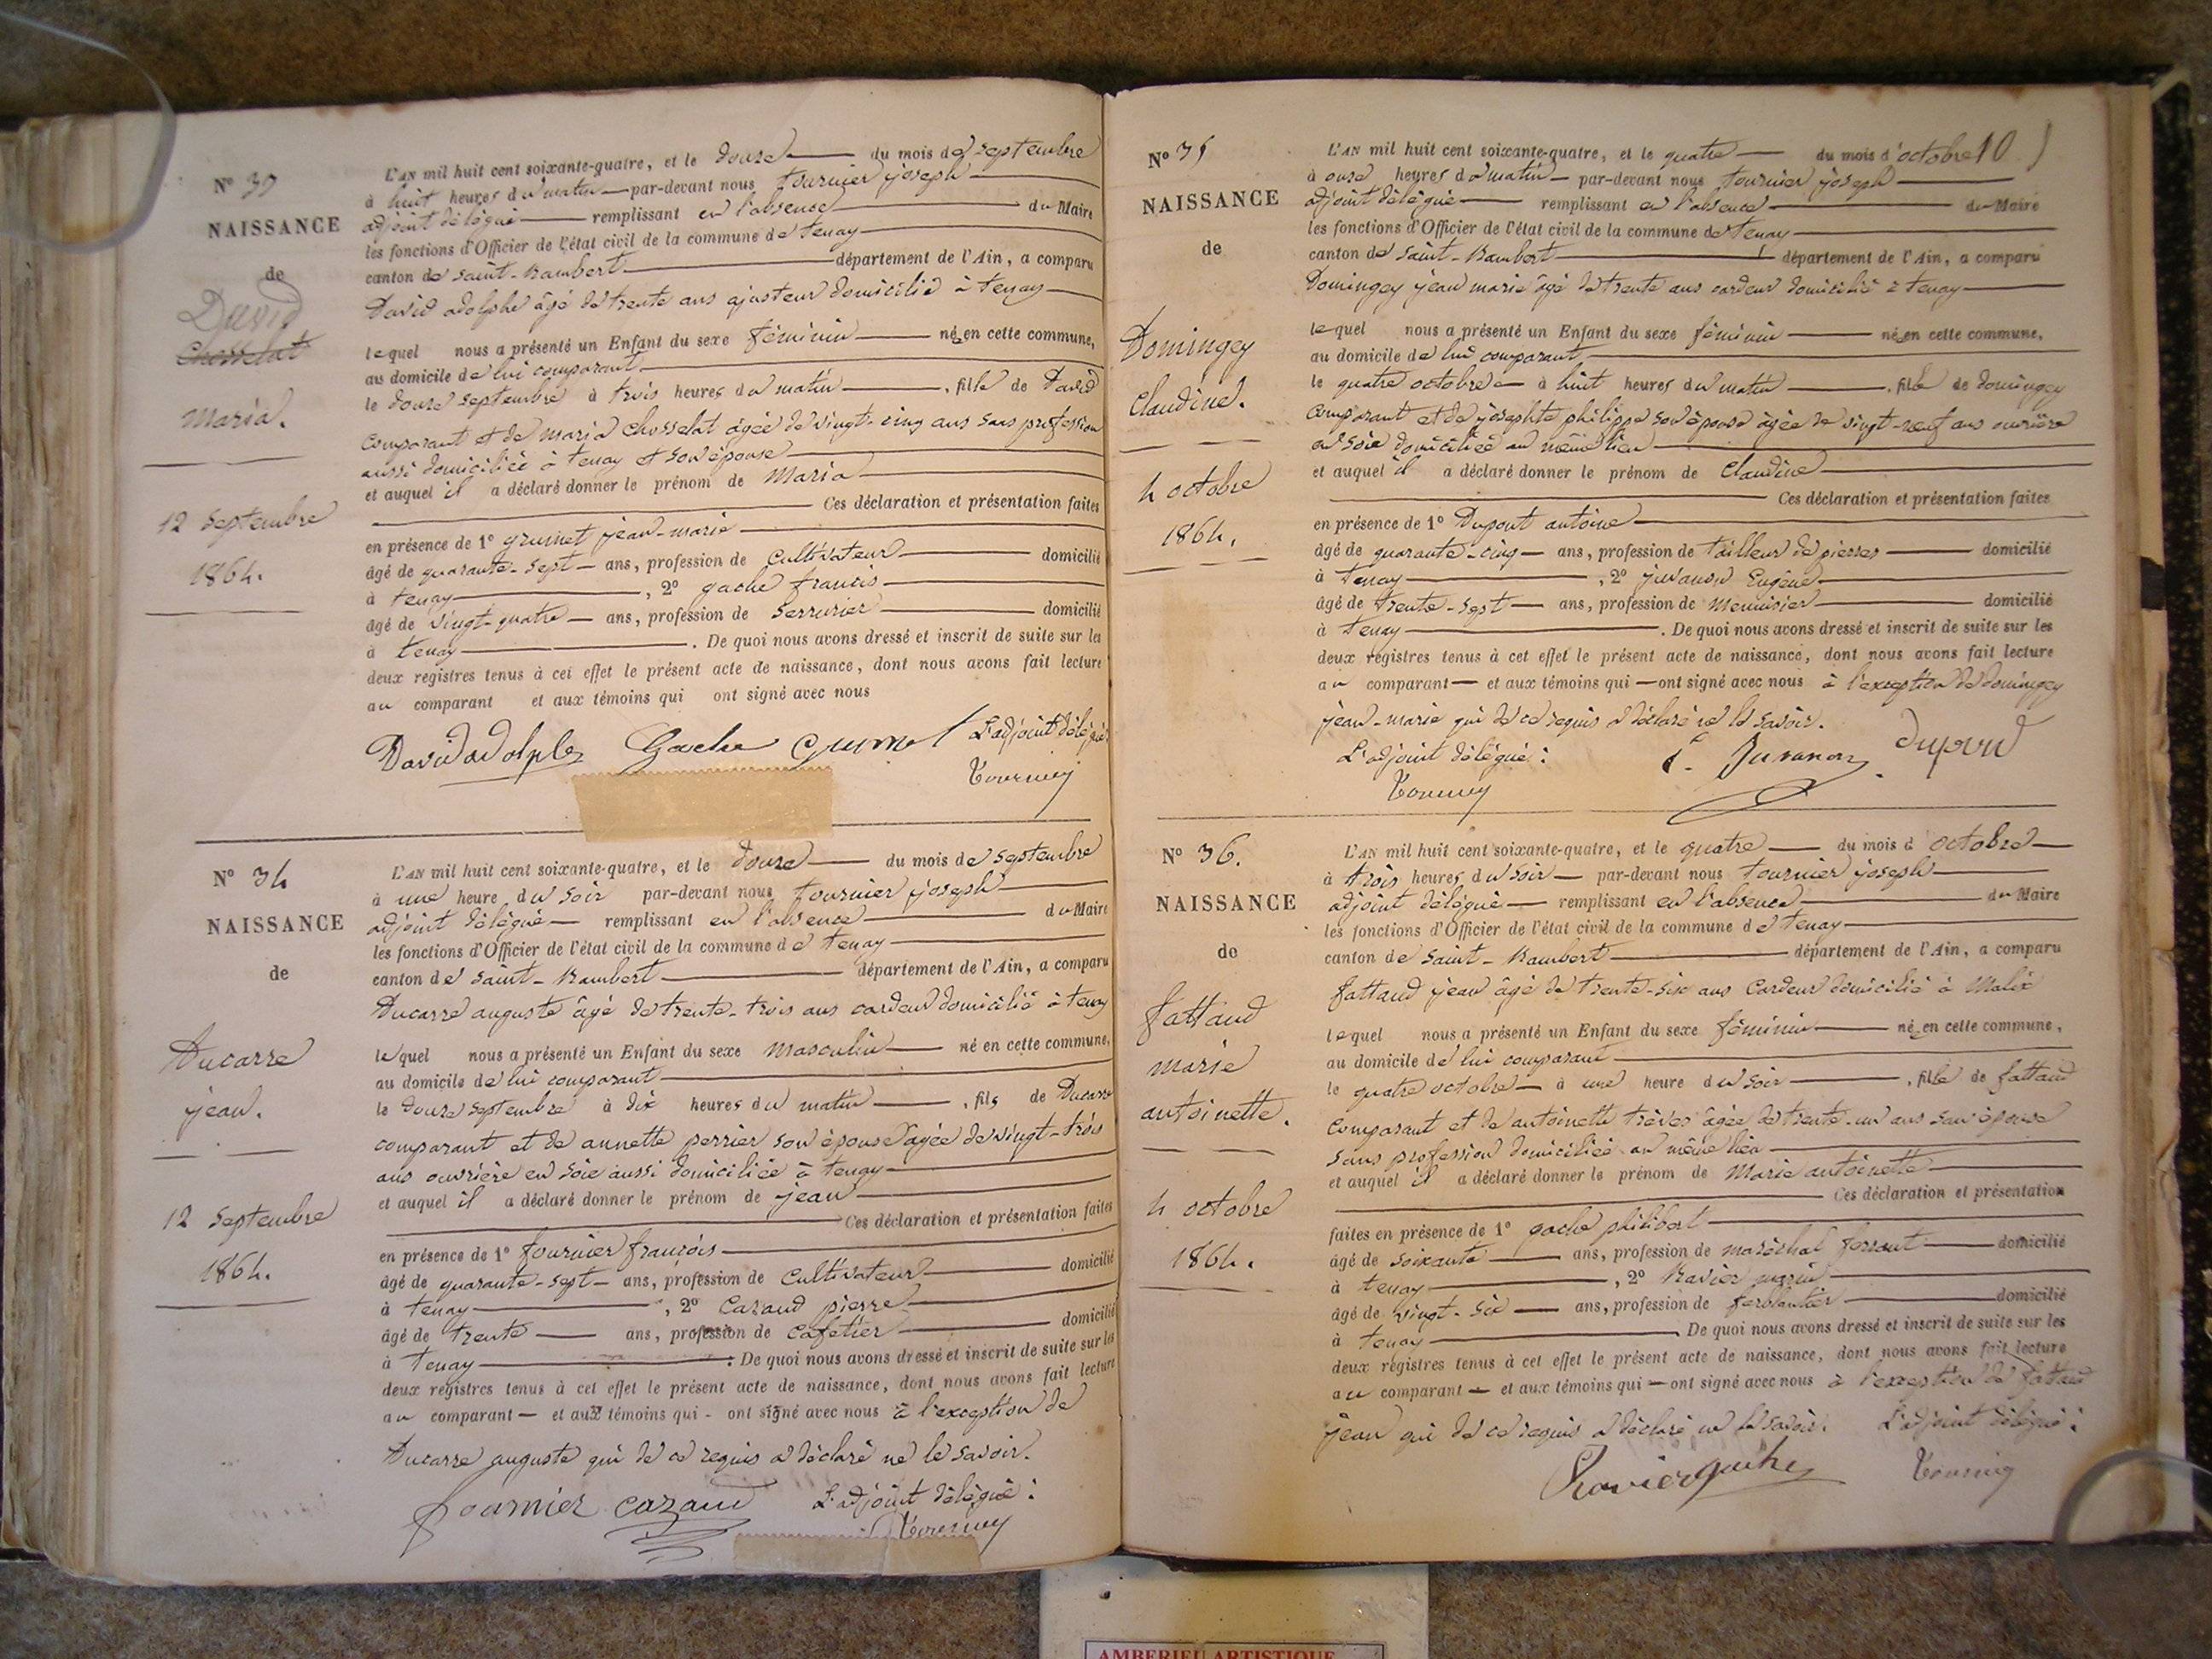 N° 33
NAISSANCE
de
David
Chosselat
Maria.
12 Septembre
1864.
L'AN mil huit cent soixante-quatre, et le douze du mois de septembre
à huit heures du matin par-devant nous tournier joseph
adjoint délégué remplissant en l'absence du Maire
les fonctions d'Officier de l'état civil de la commune de tenay
canton de saint-Rambert département de l'Ain, a comparu
David adolphe âgé de trente ans ajusteur domicilié à tenay
lequel nous a présenté un Enfant du sexe féminin née en cette commune,
au domicile de lui comparant
le douze septembre à trois heures du matin , fille de David
comparant et de maria Chosselat agée de vingt-cinq ans sans profession
aussi domiciliée à tenay et son épouse
et auquel il a déclaré donner le prénom de Maria
Ces déclaration et présentation faites
en présence de 1° grumet jean-marie
âgé de quarante-sept ans, profession de Cultivateur domicilié
à tenay , 2° gache francis
âgé de vingt-quatre ans, profession de Serrurier domicilié
à tenay . De quoi nous avons dressé et inscrit de suite sur les
deux registres tenus à cet effet le présent acte de naissance, dont nous avons fait lecture
au comparant et aux témoins qui ont signé avec nous
David adolphe Gache Grumet L'adjoint délégué
Tournier
N° 34
NAISSANCE
de
Ducarre
jean.
12 Septembre
1864.
L'AN mil huit cent soixante-quatre, et le douze du mois de septembre
à une heure du soir par-devant nous tournier joseph
adjoint délégué remplissant en l'absence du Maire
les fonctions d'Officier de l'état civil de la commune de tenay
canton de saint-Rambert département de l'Ain, a comparu
Ducarre auguste âgé de trente-trois ans cardeur domicilié à tenay
lequel nous a présenté un Enfant du sexe Masculin né en cette commune,
au domicile de lui comparant
le douze septembre à dix heures du matin , fils de Ducarre
comparant et de annette perrier son épouse agée de vingt-trois
ans ouvrière en soie aussi domiciliée à tenay
et auquel il a déclaré donner le prénom de jean
Ces déclaration et présentation faites
en présence de 1° fournier françois
âgé de quarante-sept ans, profession de Cultivateur domicilié
à tenay , 2° Cazaud pierre
âgé de trente ans, profession de Cafetier domicilié
à tenay . De quoi nous avons dressé et inscrit de suite sur les
deux registres tenus à cet effet le présent acte de naissance, dont nous avons fait lecture
au comparant et aux témoins qui ont signé avec nous à l'exception de
Ducarre auguste qui de ce requis a déclaré ne le savoir.
fournier cazaud L'adjoint délégué :
Tournier
N° 35
NAISSANCE
de
Domingey
Claudine.
4 octobre
1864.
L'AN mil huit cent soixante-quatre, et le quatre du mois d'octobre 10
à onze heures du matin par-devant nous tournier joseph
adjoint délégué remplissant en l'absence du Maire
les fonctions d'Officier de l'état civil de la commune de tenay
canton de saint-Rambert département de l'Ain, a comparu
Domingey jean marie âgé de trente ans cardeur domicilié à tenay
lequel nous a présenté un Enfant du sexe féminin née en cette commune,
au domicile de lui comparant
le quatre octobre à huit heures du matin , fille de domingey
comparant et de josephte philippe son épouse âgée de vingt-neuf ans ouvrière
en soie domiciliée au même lieu
et auquel il a déclaré donner le prénom de Claudine
Ces déclaration et présentation faites
en présence de 1° Dupont antoine
âgé de quarante-cinq ans, profession de tailleur de pierres domicilié
à tenay , 2° juvanon Eugène
âgé de trente-sept ans, profession de Menuisier domicilié
à tenay . De quoi nous avons dressé et inscrit de suite sur les
deux registres tenus à cet effet le présent acte de naissance, dont nous avons fait lecture
au comparant et aux témoins qui ont signé avec nous à l'exception de domingey
jean-marie qui de ce requis a déclaré ne le savoir.
L'adjoint délégué : Juvanon dupond
Tournier
N° 36.
NAISSANCE
de
fattaud
marie
antoinette.
4 octobre
1864.
L'AN mil huit cent soixante-quatre, et le quatre du mois d octobre
à trois heures du soir par-devant nous tournier joseph
adjoint délégué remplissant en l'absence du Maire
les fonctions d'Officier de l'état civil de la commune de tenay
canton de saint-Rambert département de l'Ain, a comparu
fattaud jean âgé de trente-six ans Cardeur domicilié à Malix
lequel nous a présenté un Enfant du sexe féminin née en cette commune,
au domicile de lui comparant
le quatre octobre à une heure du soir , fille de fattaud
comparant et de antoinette âgée de trente-un ans son épouse
sans profession domiciliée au même lieu
et auquel il a déclaré donner le prénom de Marie antoinette
Ces déclaration et présentation
faites en présence de 1° gache philibert
âgé de soixante ans, profession de maréchal ferrant domicilié
à tenay , 2° Ravier marin
âgé de vingt-six ans, profession de ferblantier domicilié
à tenay De quoi nous avons dressé et inscrit de suite sur les
deux registres tenus à cet effet le présent acte de naissance, dont nous avons fait lecture
au comparant et aux témoins qui ont signé avec nous à l'exception de fattaud
jean qui de ce requis a déclaré ne le savoir. L'adjoint délégué :
Ravier gache Tournier
AMBERIEU ARTISTIQUE